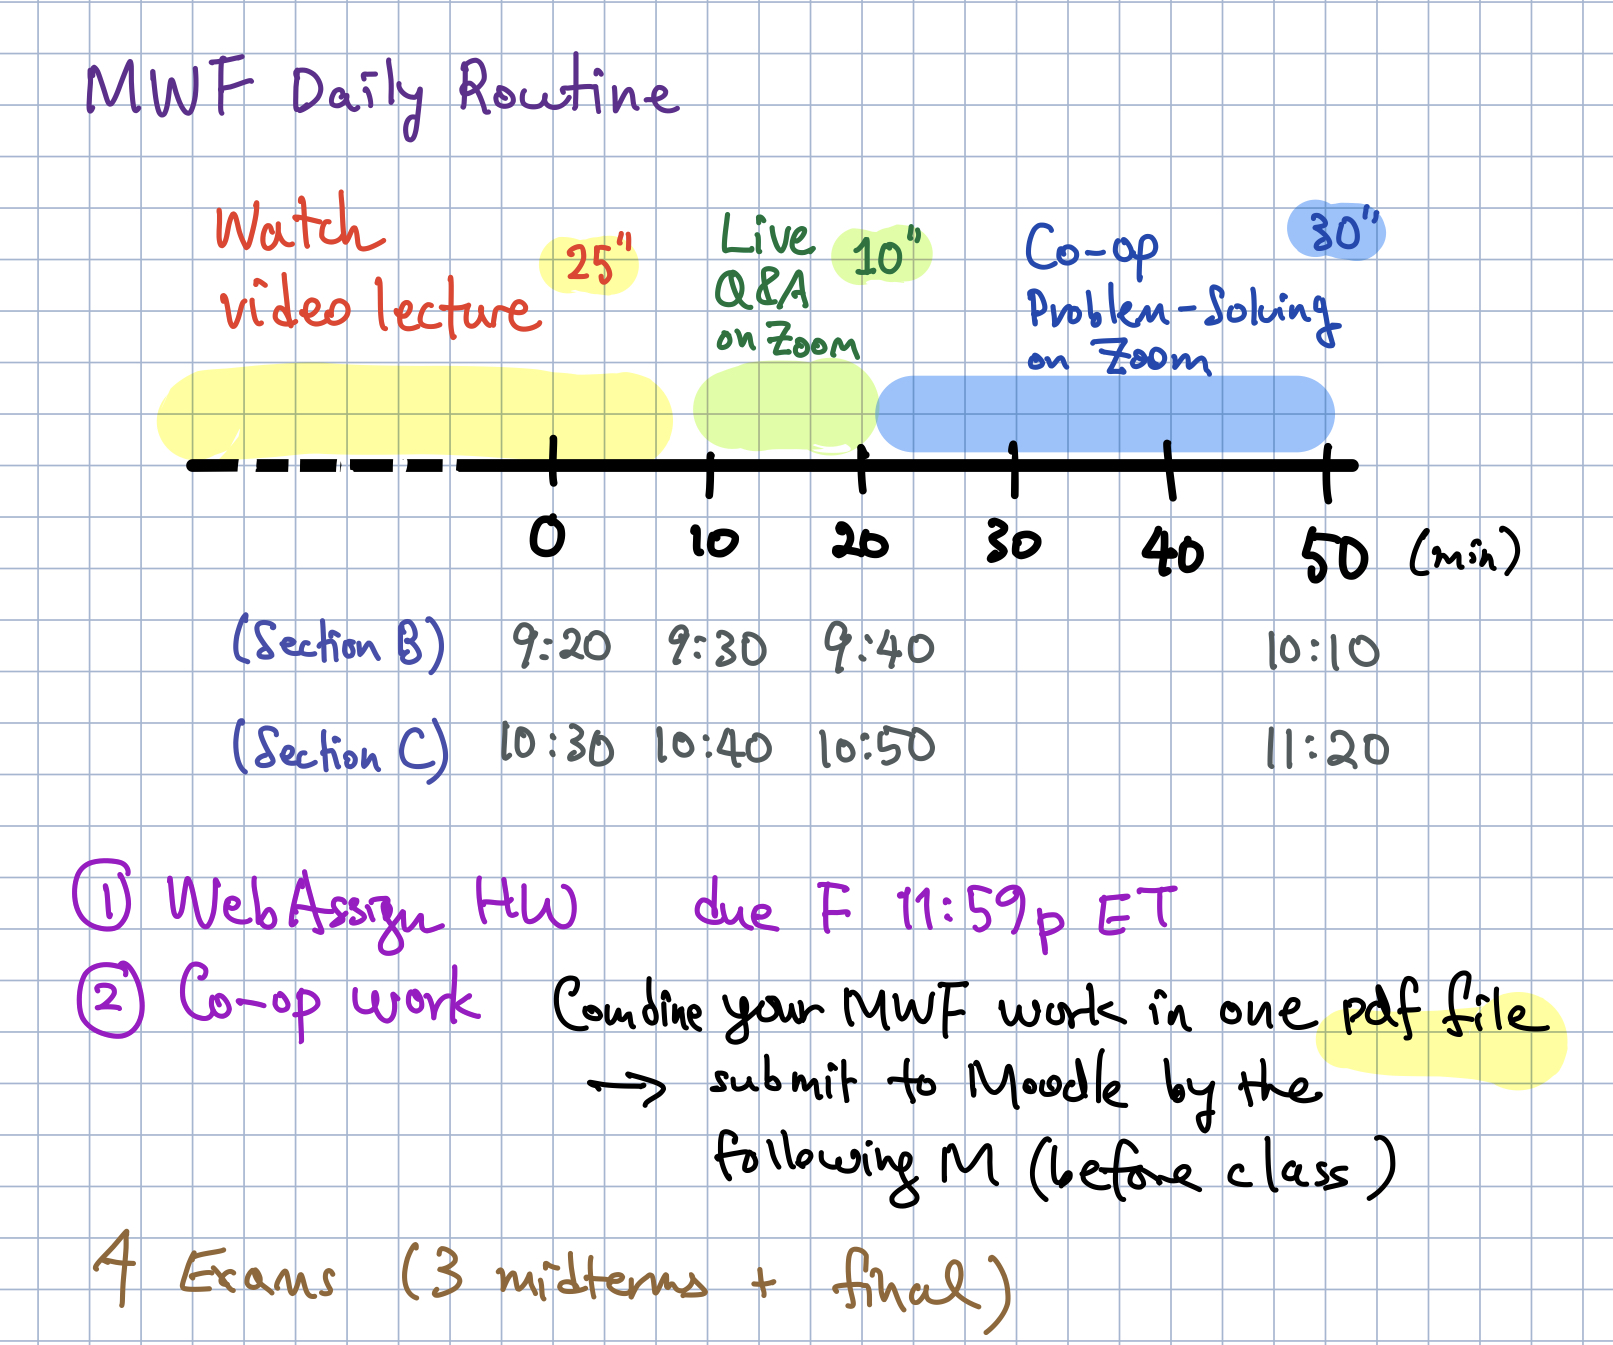 MWF Daily Routine
Watch
video lecture
25"
Live
Q&A
on Zoom
10"
Co-op
Problem-Solving
on Zoom
30"
0 10 20 30 40 50 (min)
(Section B) 9:20 9:30 9:40 10:10
(Section C) 10:30 10:40 10:50 11:20
① WebAssign HW due F 11:59p ET
② Co-op work Combine your MWF work in one pdf file
→ submit to Moodle by the
following M (before class)
4 Exams (3 midterms + final)